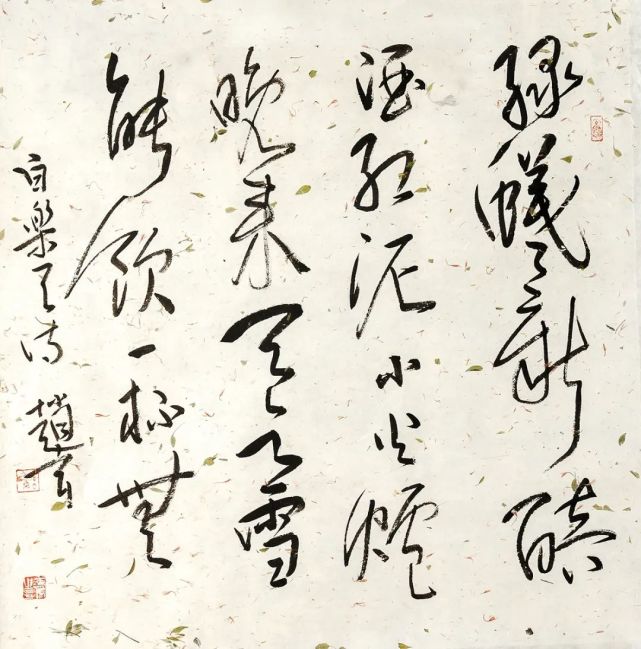 綠蟻新醅
酒紅泥小火爐
晚来天欲雪
能飲一杯無
白樂天诗 趙